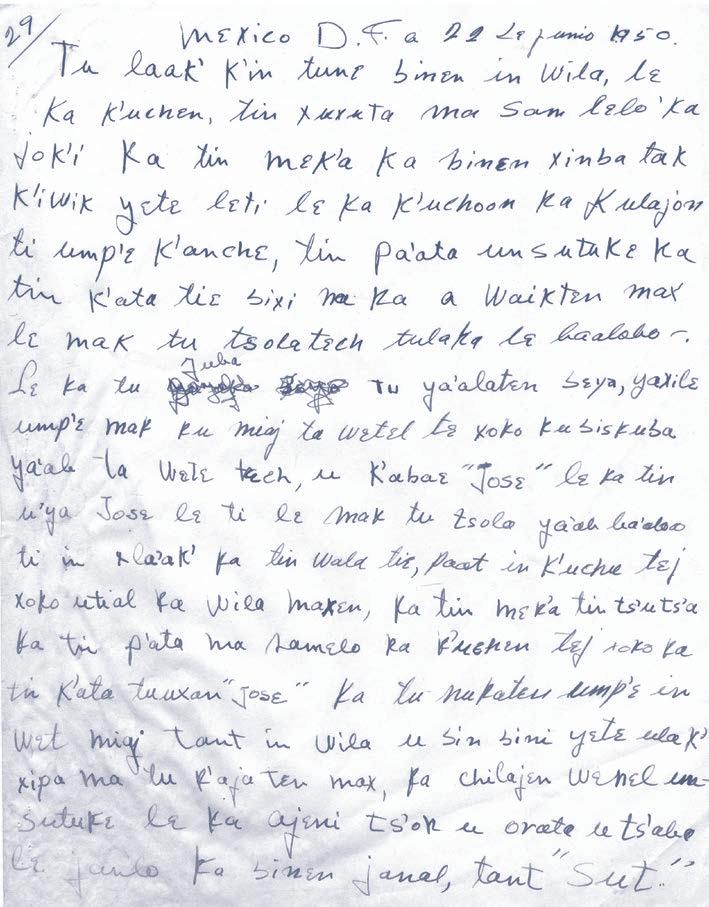 29/
Mexico D.F. a 22 de junio 1950.
Tu laak' k'in tune binen in wila, le
ka k'uchen, tin xuxuta ma sam lelo' ka
jok'i ka tin mek'a ka binen xinba tak
k'iwik yete leti le ka k'uchoon ka kulajon
ti ump'e k'anche, tin pa'ata unsutuke ka
tin k'ata tie bixi ka a waikten max
le mak tu tsolatech tulaka le baalobo-.
Juba
Le ka tu tu ya'alaten beya, yaxile
ump'e mak ku miaj ta wetel te xoko kubiskuba
ya'ab ta wete tech, u k'abae "Jose" le ka tin
u'ya Jose le ti le mak tu tsola ya'ab ba'aloo
ti in xla'ak' ka tin wala tie, paat in k'uchu tej
xoko utial ka wila maxen, ka tin mek'a tin ts'uts'a
ka tin p'ata ma samelo ka k'uchen tej xoko ka
tin k'ata tuuxan "Jose" ka tu nukaten ump'e in
wet miaj tant in wila u bin bini yete ulak'
xipa ma tu k'aja ten max, ka chilajen wenel un-
sutuke le ka ajeni ts'ok u orata u ts'abe
le janlo ka binen janal, tant "Sut."